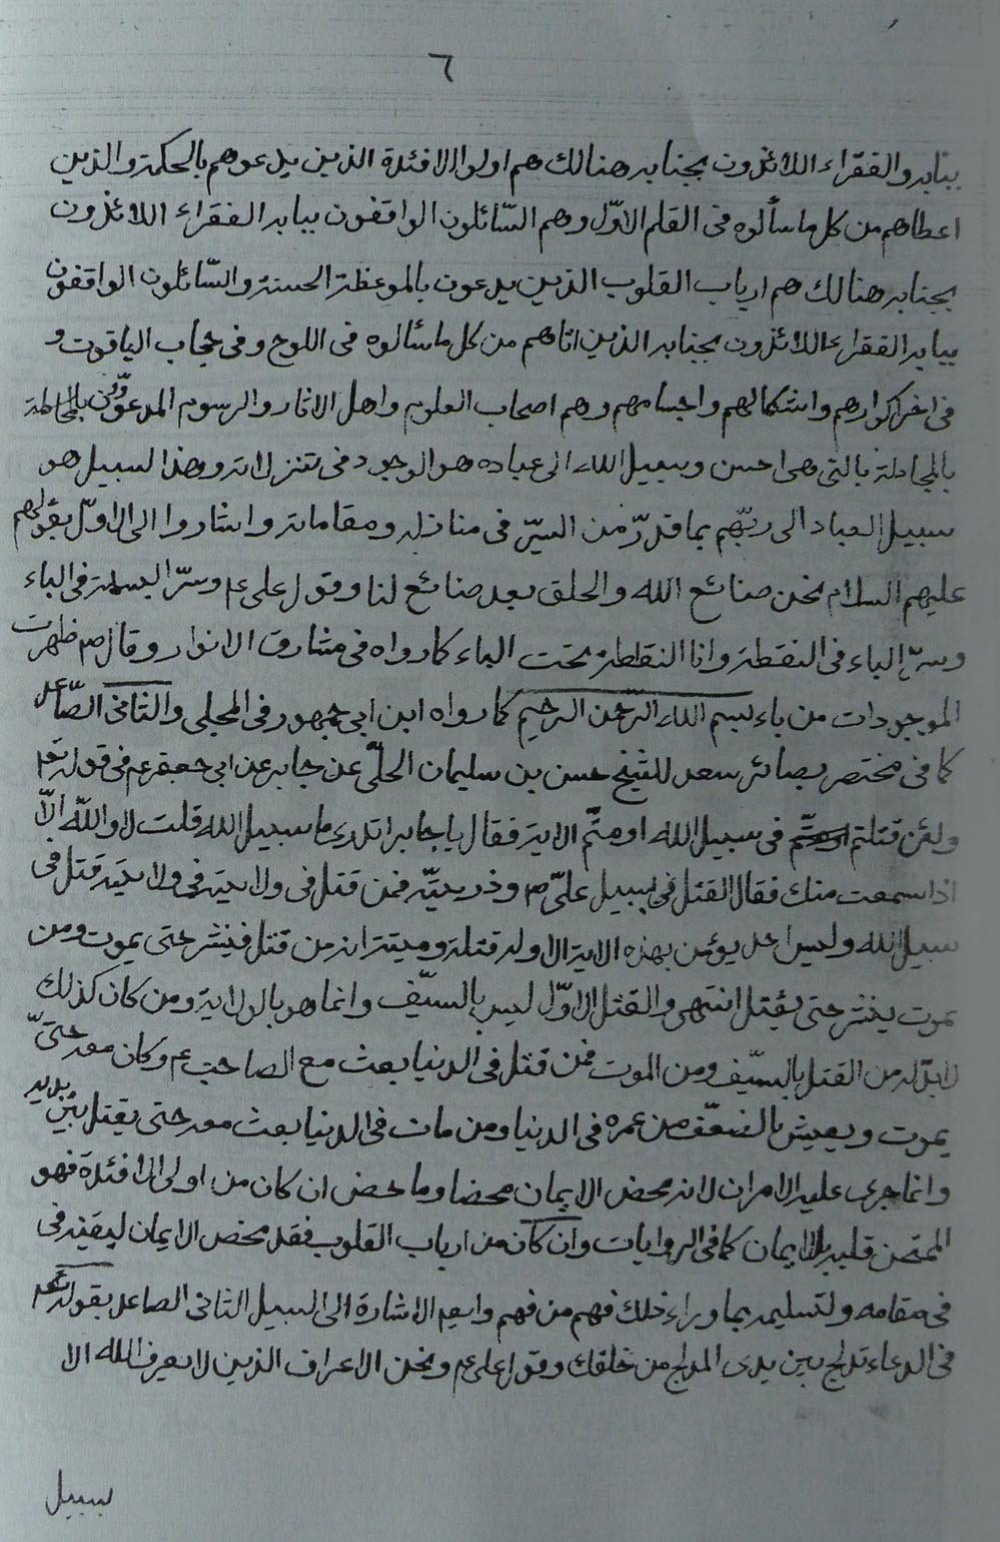 ٦
ببابه والفقراء اللائذون بجنابه هنالك هم اولوا الافئدة الذين يدعوهم بالحكمة والذين
اعطاهم من كل ما سألوه فى القلم الاوّل وهم السّائلون الواقفون ببابه الفقراء اللائذون
بجنابه هنالك هم ارباب القلوب الذين يدعون بالموعظة الحسنة والسّائلون الواقفون
ببابه الفقراء اللائذون بجنابه الذين اتاهم من كل ما سئالوه فى اللوح وفى حجاب الياقوت و
فى اخر اكوارهم واشكالهم واجسامهم وهم اصحاب العلوم واهل الاثار والرسوم المدعوّون بالمجادلة
بالمجادلة بالتى هى احسن وسبيل الله الى عباده هو الوجود فى تنزلاته وهذا السبيل هو
سبيل العباد الى ربّهم بما قدّر من السير فى منازله ومقاماته واشاروا الى الاوّل بقولهم
عليهم السلام نحن صنائع الله والخلق بعد صنائع لنا وقول على ع وسرّ البسملة فى الباء
وسرّ الباء فى النقطة وانا النقطة تحت الباء كما رواه فى مشارق الانوار وقال ص ظهرت
الموجودات من باء بسم الله الرحمن الرحيم كما رواه ابن ابى جمهور فى المجلى والثانى الصّاعد
كما فى مختصر بصائر سعد للشيخ حسن بن سليمان الحلّى عن جابر عن ابى جعفر ع فى قوله تعالى
ولئن قتلتم فى سبيل الله او متّم الاية فقال يا جابر اتدرى ما سبيل الله قلت لا والله الّا
اذا سمعت منك فقال القتل فى سبيل علىّ ع وذريّته فمن قتل فى ولايته فى ولايته قتل فى
سبيل الله وليس احد يؤمن بهذه الاية الا وله قتلة وميتة انه من قتل فينشر حتى يموت ومن
يموت ينشر حتى يقتل انتهى والقتل الاوّل ليس بالسيّف وانما هو بالولاية ومن كان كذلك
لابدّ له من القتل بالسيّف ومن الموت فمن قتل فى الدنيا بعث مع الصاحب ع وكان معه حتىّ
يموت ويعيش بالضعّف من عمره فى الدنيا ومن مات فى الدنيا بعث معه حتى يقتل بين يديه
وانما جرى عليه الامران لانه محض الايمان محضا وماحض ان كان من اولى الافئدة فهو
الممتحن قلبه بالايمان كما فى الروايات وان كان من ارباب القلوب فقد محض الايمان ليقينه فى
فى مقامه ولتسليمه بما وراء ذلك فهم من فهم واليه الاشارة الى السبيل الثانى الصاعد بقوله
فى الدعاء تدلج بين يدى المدلج من خلقك وقول على ع ونحن الاعراف الذين لا يعرف الله الا
بسبيل